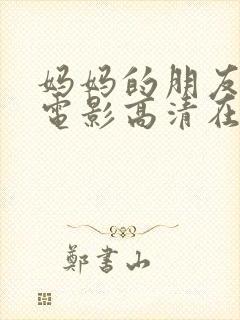 妈妈的朋友
電影高清在
鄭書山